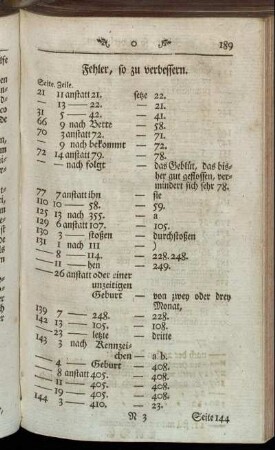 o 189
Fehler, so zu verbessern.
Seite. Zeile.
21 11 anstatt 21. setze 22.
— 13 — 22. — 21.
31 5 — 42. — 41.
66 9 nach Bette — 58.
70 3 anstatt 72. — 71.
— 9 nach bekommt — 72.
72 14 anstatt 79. — 78.
— nach folgt — das Geblüt, das bis-
her gut geflossen, ver-
mindert sich sehr 78.
77 7 anstatt ihn — sie
110 10 — 58. — 59.
125 13 nach 355. — a
129 6 anstatt 107. — 105.
130 3 — stoßen — durchstoßen
131 1 nach 111 — )
— 8 — 114. — 228. 248.
— 11 — hen — 249.
— 26 anstatt oder einer
unzeitigen
Geburt — von zwey oder drey
Monat,
139 7 — 248. — 228.
142 13 — 105. — 104.
— 23 — letzte — dritte
143 3 nach Kennzei-
chen — a b.
— 4 — Geburt — 408.
— 8 anstatt 405. — 408.
— 11 — 405. — 408.
— 19 — 405. — 408.
144 3 — 410. — 23.
N 3 Seite 144